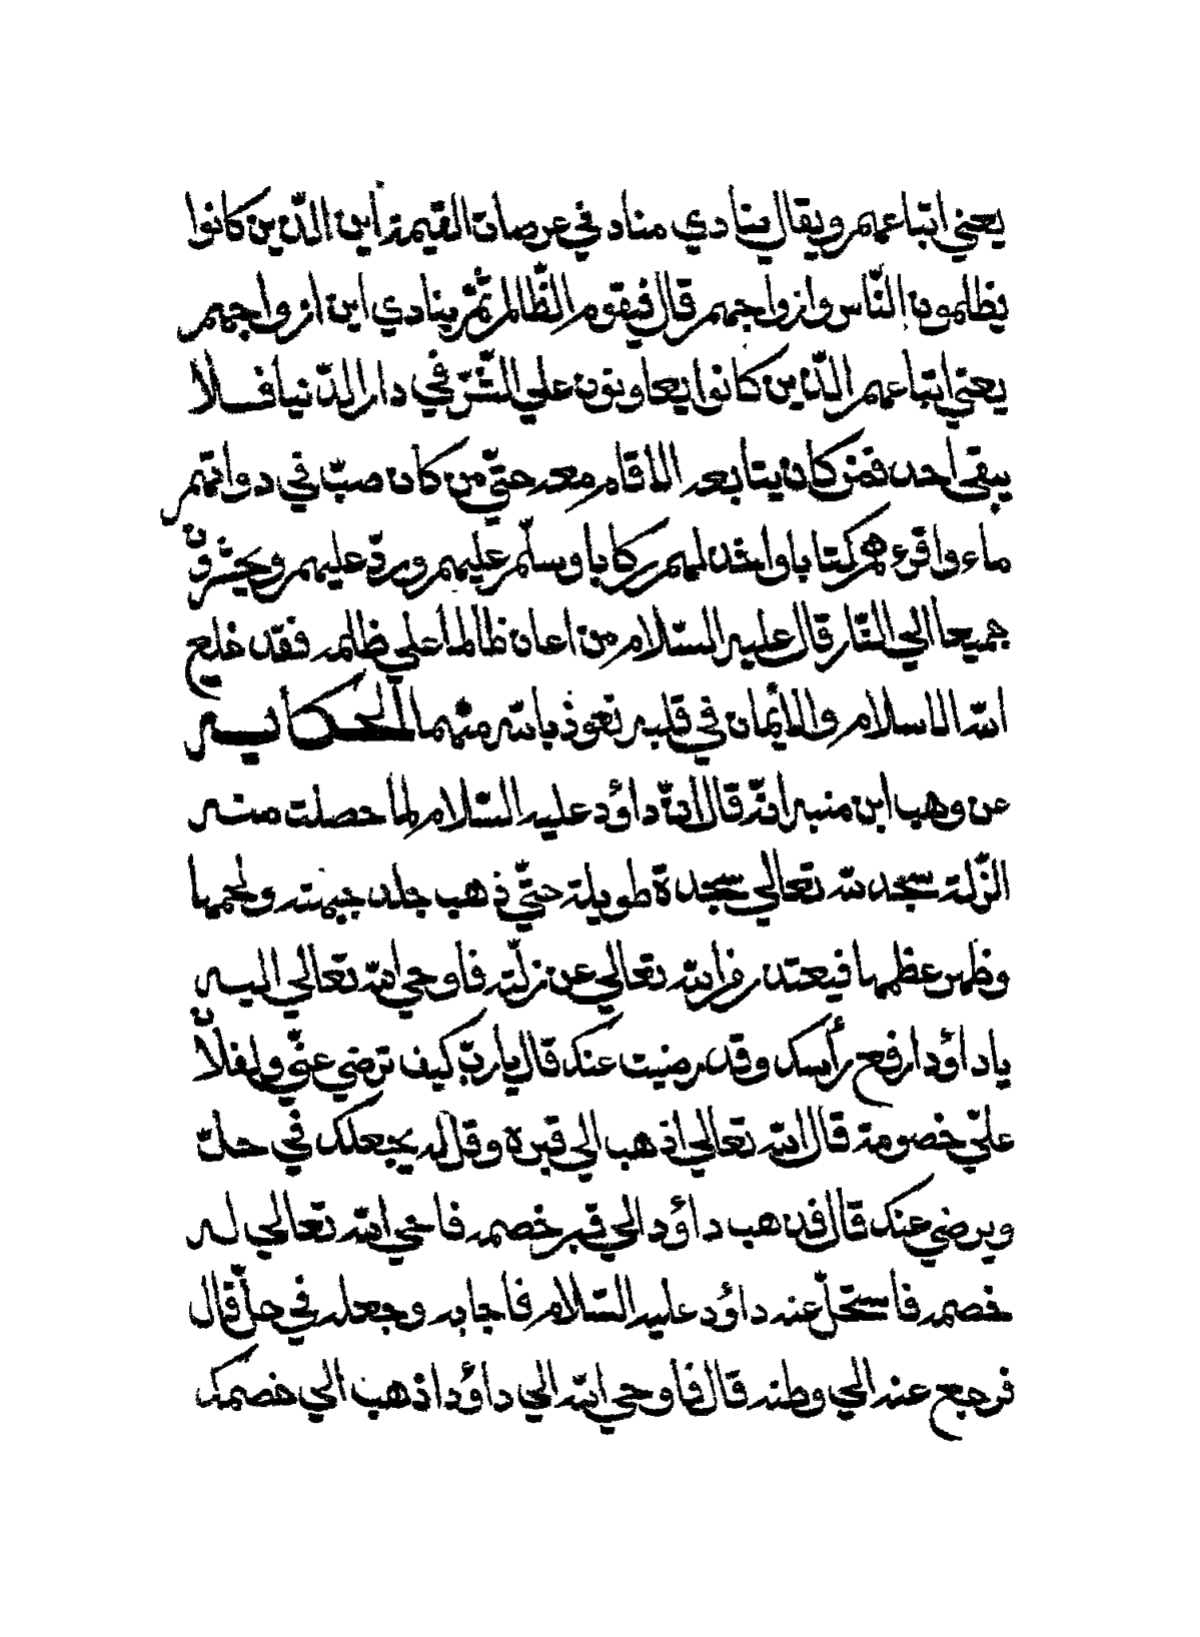 يعني اتباعهم ويقال ينادي مناد في عرصات القيمة أين الذين كانوا
يظلمون الناس وازواجهم قال فيقوم الظالم ثم ينادي اين ازواجهم
يعني اتباعهم الذين كانوا يعاونون علي الشر في دار الدنيا فلا
يبقي احد فمن كان يتابعه الا اقام معه حتي من كان صب في دواتهم
ماء واقرءهم كتابا واخذ لهم ركابا وسلم عليهم ورد عليهم ويحشرون
جميعا الي النار قال عليه السلام من اعان ظالما علي ظلمه فقد خلع
الله الاسلام والأيمان في قلبه نعوذ بالله منهما الحكاية
عن وهب ابن منبه انه قال ان داؤد عليه السلام لما حصلت منه
الزلة سجد لله تعالي سجدة طويلة حتي ذهب جلد جبهته ولحمها
وظهر عظمها فيعتذر الله تعالي عن زلته فاوحي الله تعالي اليه
ياداؤد ارفع رأسك وقد رضيت عنك قال يارب كيف ترضي عني ولفلان
علي خصومة قال الله تعالي اذهب الي قبره وقل له يجعلك في حل
ويرضي عنك قال فذهب داؤد الي قبر خصمه فاحي الله تعالي له
خصمه فاستحل عنه داؤد عليه السلام فاجابه وجعله في حل قال
فرجع عنه الي وطنه قال فاوحي الله الي داؤد اذهب الي خصمك